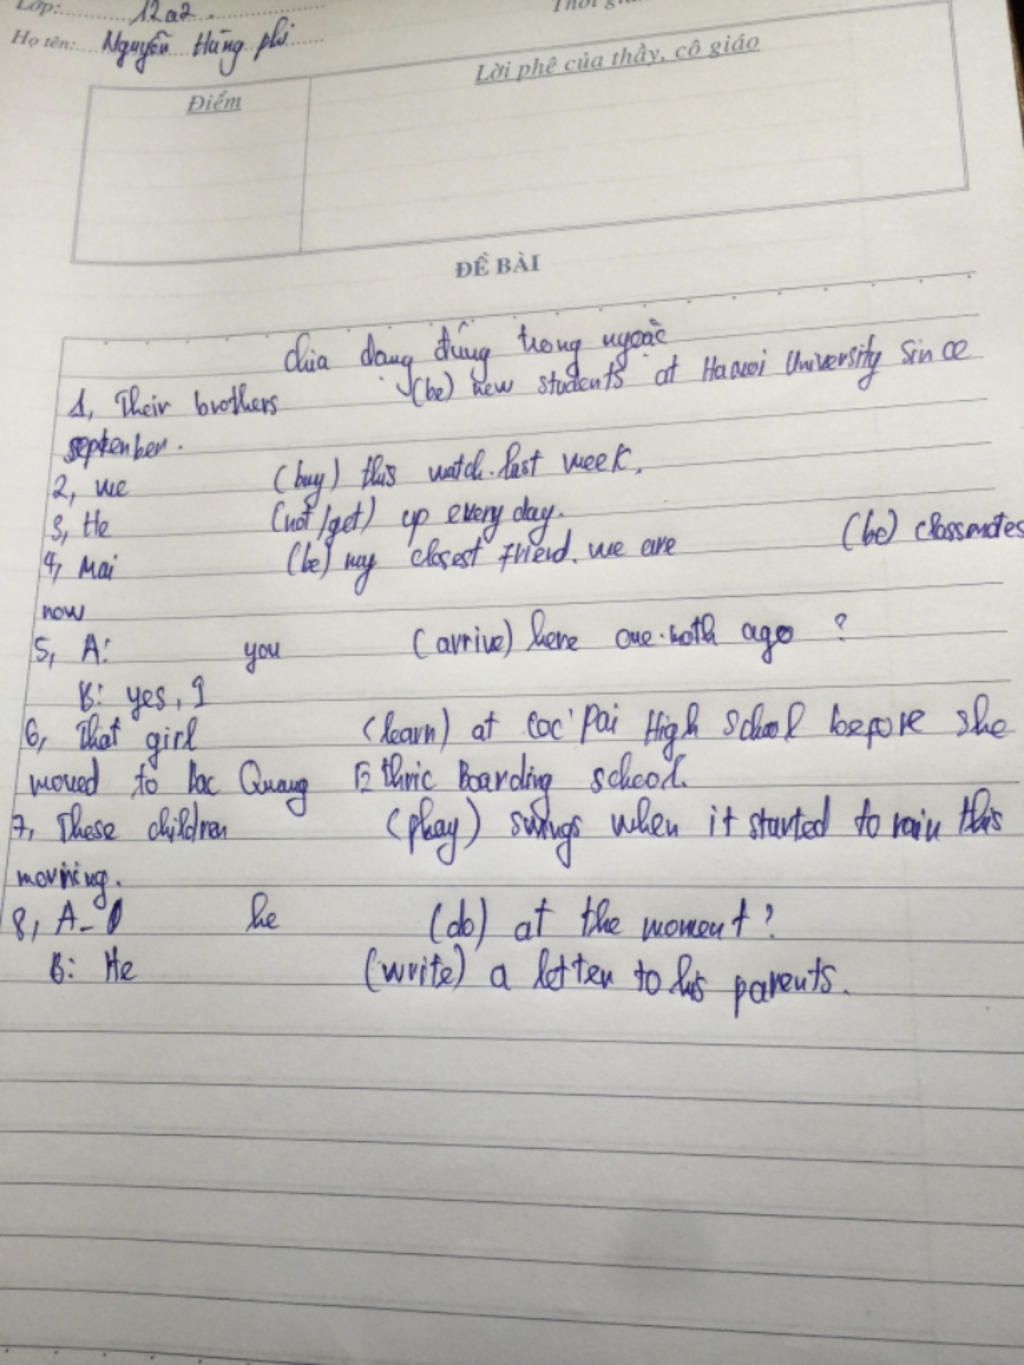 Lớp: 12a2
Họ tên: Nguyễn Hùng phi
Điểm
Lời phê của thầy, cô giáo
ĐỀ BÀI
chia dang đúng trong ngoặc
1, Their brothers (be) new students at Hanoi University Since
september.
2, we (buy) this watch last week.
3, He (not/get) up every day.
4, Mai (be) my closest friend. we are (be) classmates
now
5, A: you (arrive) here one moth ago ?
B: yes, I
6, That girl (learn) at Coc Pai High School before she
moved to Bac Quang Ethnic Boarding school.
7, These children (play) swings when it started to rain this
morning.
8, A- he (do) at the moment?
B: He (write) a letter to his parents.